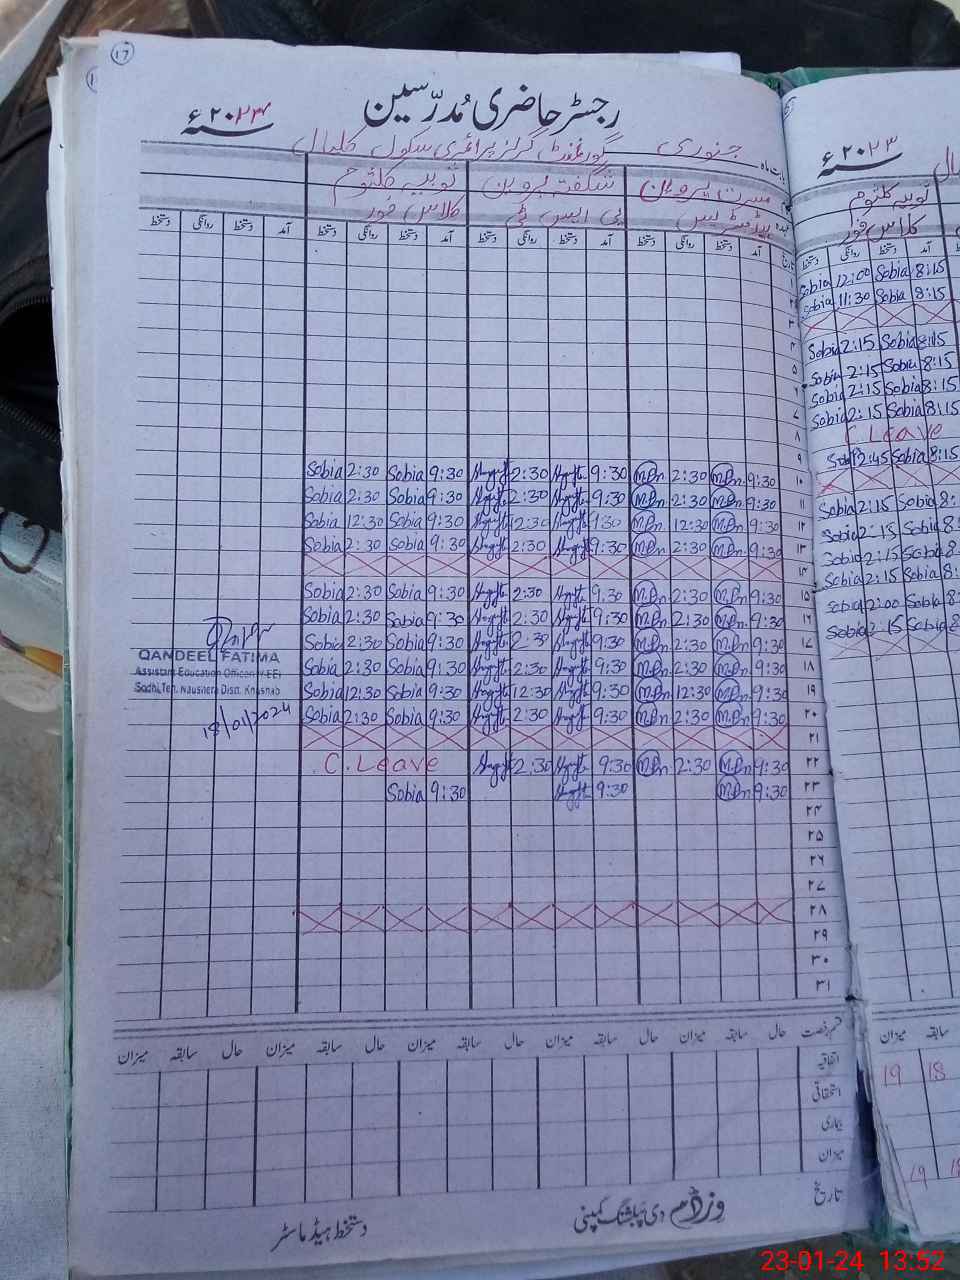 ۱۷
رجسٹر حاضری مُدرّسین
۲۰۲۴ء
جنوری گورنمنٹ گرلز پرائمری سکول
مسرت پروین شگفتہ پروین ثوبیہ کلثوم
ہیڈمسٹریس پی ایس ٹی کلاس فور
تاریخ آمد دستخط روانگی دستخط آمد دستخط روانگی دستخط آمد دستخط روانگی دستخط آمد دستخط روانگی دستخط
۱
۲
۳
۴
۵
۶
۷
۸
۹
Sobia 2:30 Sobia 9:30 2:30 9:30 M.Pn 2:30 M.Pn 9:30 ۱۰
Sobia 2:30 Sobia 9:30 2:30 9:30 M.Pn 2:30 M.Pn 9:30 ۱۱
Sobia 12:30 Sobia 9:30 12:30 9:30 M.Pn 12:30 M.Pn 9:30 ۱۲
Sobia 2:30 Sobia 9:30 2:30 9:30 M.Pn 2:30 M.Pn 9:30 ۱۳
Sobia 2:30 Sobia 9:30 2:30 9:30 M.Pn 2:30 M.Pn 9:30 ۱۵
Sobia 2:30 Sobia 9:30 2:30 9:30 M.Pn 2:30 M.Pn 9:30 ۱۶
Sobia 2:30 Sobia 9:30 2:30 9:30 M.Pn 2:30 M.Pn 9:30 ۱۷
Sobia 2:30 Sobia 9:30 2:30 9:30 M.Pn 2:30 M.Pn 9:30 ۱۸
Sobia 12:30 Sobia 9:30 12:30 9:30 M.Pn 12:30 M.Pn 9:30 ۱۹
Sobia 2:30 Sobia 9:30 2:30 9:30 M.Pn 2:30 M.Pn 9:30 ۲۰
۲۱
C. Leave 2:30 9:30 M.Pn 2:30 M.Pn 9:30 ۲۲
Sobia 9:30 9:30 M.Pn 9:30 ۲۳
۲۴
۲۵
۲۶
۲۷
۲۸
۲۹
۳۰
۳۱
QANDEEL FATIMA
Assistant Education Officer (W-EE)
Sodhi, Teh. Naushera Distt. Khushab
18/01/2024
قسم رخصت حال سابقہ میزان حال سابقہ میزان حال سابقہ میزان حال سابقہ میزان
اتفاقیہ
استحقاقی
بیماری
میزان
تاریخ
دستخط ہیڈ ماسٹر
دی پبلشنگ کمپنی
۲۰۲۳ء
ثوبیہ کلثوم
کلاس فور
دستخط روانگی دستخط آمد
Sobia 12:00 Sobia 8:15
Sobia 11:30 Sobia 8:15
Sobia 2:15 Sobia 8:15
Sobia 2:15 Sobia 8:15
Sobia 2:15 Sobia 8:15
Sobia 2:15 Sobia 8:15
C Leave
2:45 Sobia 8:15
Sobia 2:15 Sobia 8:
Sobia 2:15 Sobia 8:
Sobia 2:15 Sobia 8:
Sobia 2:15 Sobia 8:
Sobia 2:00 Sobia 8:
Sobia 2:15 Sobia 8:
میزان سابقہ
19 18
19 18
23-01-24 13:52